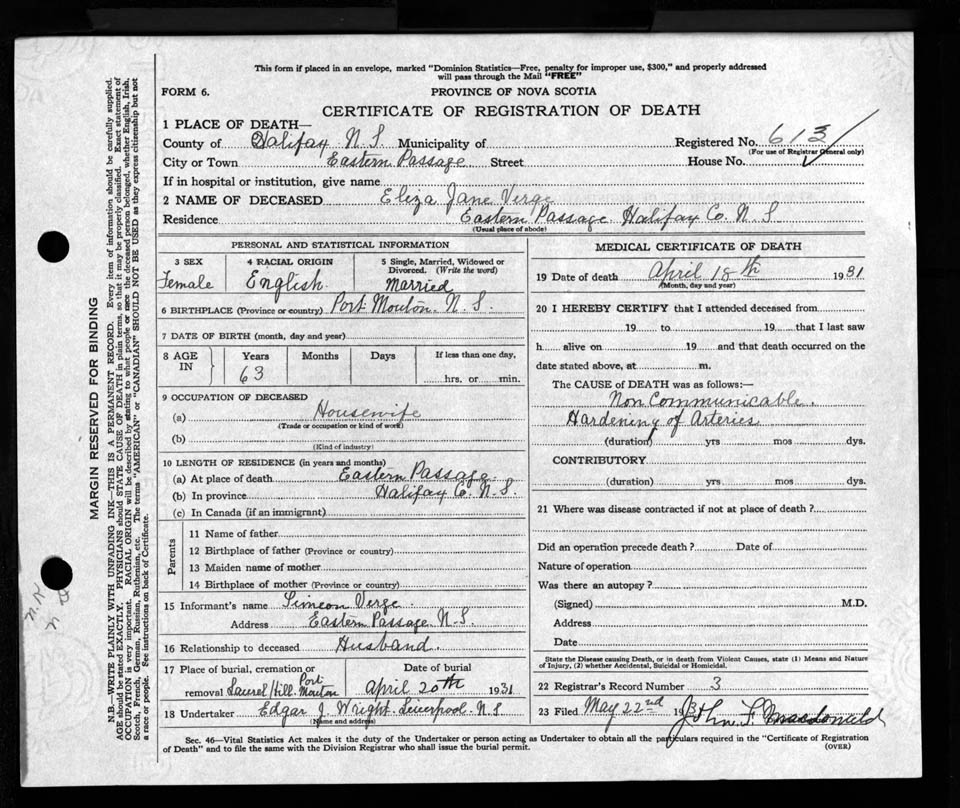 This form if placed in an envelope, marked "Dominion Statistics—Free, penalty for improper use, $300," and properly addressed
will pass through the Mail "FREE"
FORM 6.
PROVINCE OF NOVA SCOTIA
CERTIFICATE OF REGISTRATION OF DEATH
1 PLACE OF DEATH—
County of Halifax N. S. Municipality of Registered No. 613
(For use of Registrar General only)
City or Town Eastern Passage Street House No.
If in hospital or institution, give name
2 NAME OF DECEASED Eliza Jane Verge
Residence Eastern Passage Halifax Co. N S
(Usual place of abode)
PERSONAL AND STATISTICAL INFORMATION
3 SEX
Female
4 RACIAL ORIGIN
English
5 Single, Married, Widowed or
Divorced. (Write the word)
Married
6 BIRTHPLACE (Province or country) Port Mouton. N. S.
7 DATE OF BIRTH (month, day and year)
8 AGE
IN
Years
63
Months
Days
If less than one day,
hrs. or min.
9 OCCUPATION OF DECEASED
(a) Housewife
(Trade or occupation or kind of work)
(b)
(Kind of industry)
10 LENGTH OF RESIDENCE (in years and months)
(a) At place of death Eastern Passage
(b) In province Halifax Co. N. S.
(c) In Canada (if an immigrant)
Parents
11 Name of father
12 Birthplace of father (Province or country)
13 Maiden name of mother
14 Birthplace of mother (Province or country)
15 Informant's name Simeon Verge
Address Eastern Passage N. S.
16 Relationship to deceased Husband.
17 Place of burial, cremation or
removal Laurel Hill. Port Mouton
Date of burial
April 20th 1931
18 Undertaker Edgar J. Wright. Liverpool. N. S
(Name and address)
MEDICAL CERTIFICATE OF DEATH
19 Date of death April 18th 1931
(Month, day and year)
20 I HEREBY CERTIFY that I attended deceased from
19 to 19 that I last saw
h alive on 19 and that death occurred on the
date stated above, at m.
The CAUSE OF DEATH was as follows:—
Non Communicable.
Hardening of Arteries
(duration) yrs mos dys.
CONTRIBUTORY
(duration) yrs. mos. dys.
21 Where was disease contracted if not at place of death?
Did an operation precede death? Date of
Nature of operation
Was there an autopsy?
(Signed) M.D.
Address
Date
State the Disease causing Death, or in death from Violent Causes, state (1) Means and Nature
of Injury, (2) whether Accidental, Suicidal or Homicidal.
22 Registrar's Record Number 3
23 Filed May 22nd 193 John F Macdonald
Sec. 46—Vital Statistics Act makes it the duty of the Undertaker or person acting as Undertaker to obtain all the particulars required in the "Certificate of Registration
of Death" and to file the same with the Division Registrar who shall issue the burial permit.
(OVER)
MARGIN RESERVED FOR BINDING
N.B.—WRITE PLAINLY WITH UNFADING INK—THIS IS A PERMANENT RECORD. Every item of information should be carefully supplied.
AGE should be stated EXACTLY. PHYSICIANS should STATE CAUSE OF DEATH in plain terms, so that it may be properly classified. Exact statement of
OCCUPATION is very important. RACIAL ORIGIN will be described by stating to what people or race the deceased person belonged, whether English, Irish,
Scotch, French, German, Russian, Ruthenian, etc. The terms "AMERICAN" or "CANADIAN" SHOULD NOT BE USED as they express citizenship but not
a race or people. See instructions on back of Certificate.